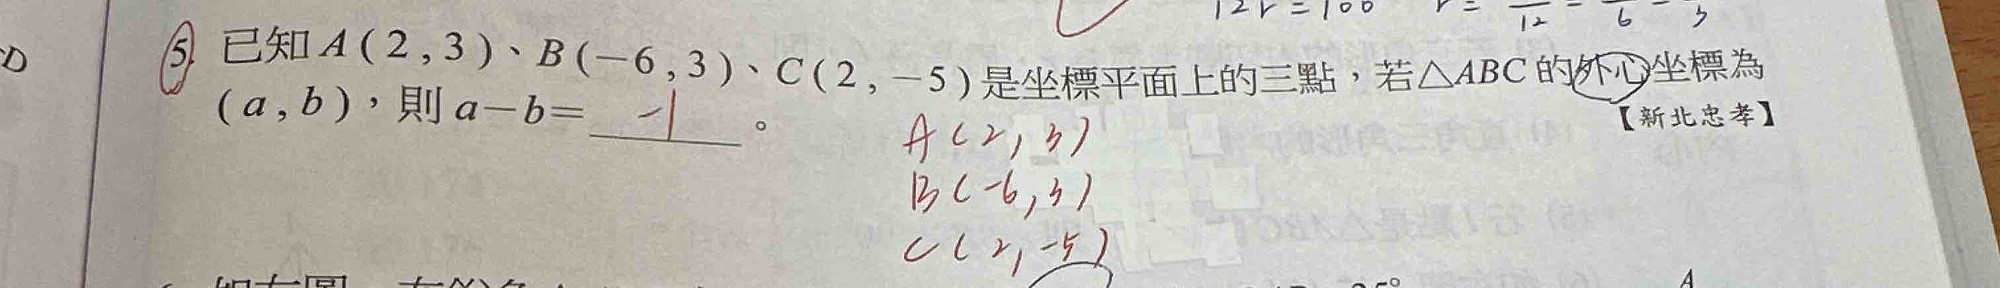 12r=100 r=
12 6 3
5. 已知A(2,3)、B(−6,3)、C(2,−5)是坐標平面上的三點，若△ABC的外心坐標為
(a,b)，則a−b= -1 。
【新北忠孝】
A(2,3)
B(-6,3)
C(2,-5)
A